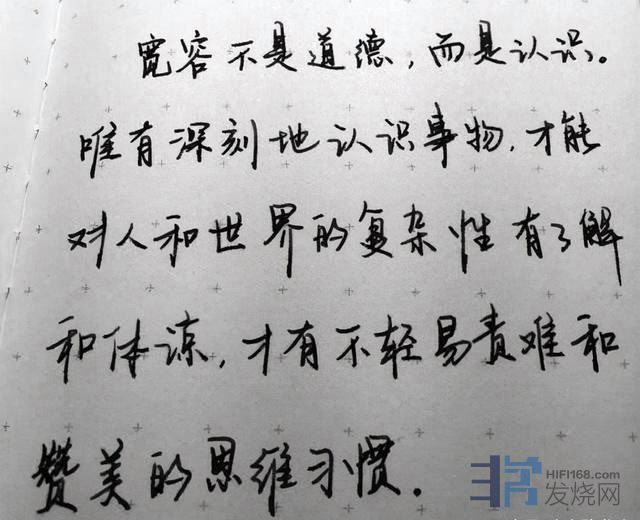 宽容不是道德，而是认识。
唯有深刻地认识事物，才能
对人和世界的复杂性有了解
和体谅，才有不轻易责难和
赞美的思维习惯。
HIFI168.com
发烧网